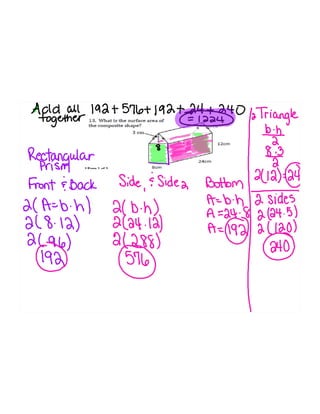 Add all 192+576+192+24+240
together = 1224
13. What is the surface area of
the composite shape?
3 cm
8
12cm
24cm
8cm
Rectangular
Prism
Front & Back
2(A=b·h)
2(8·12)
2(96)
192
Side1 & Side2
2(b·h)
2(24·12)
2(288)
576
Bottom
A=b·h
A=24·8
A=192
2 Triangle
b·h
2
8·3
2
2(12)=24
2 sides
2(24·5)
2(120)
240